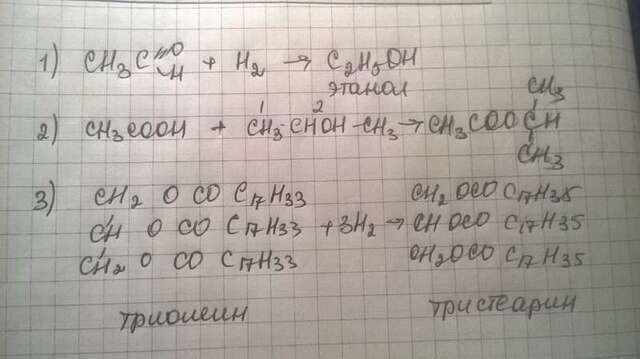 1) CH3C=O-H + H2 → C2H5OH
этанол
CH3
2) CH3COOH + CH3-CHOH-CH3 → CH3COOCH
1 2
CH3
3) CH2 O CO C17H33 CH2 OCO C17H35
CH O CO C17H33 + 3H2 → CH OCO C17H35
CH2 O CO C17H33 CH2OCO C17H35
триолеин тристеарин